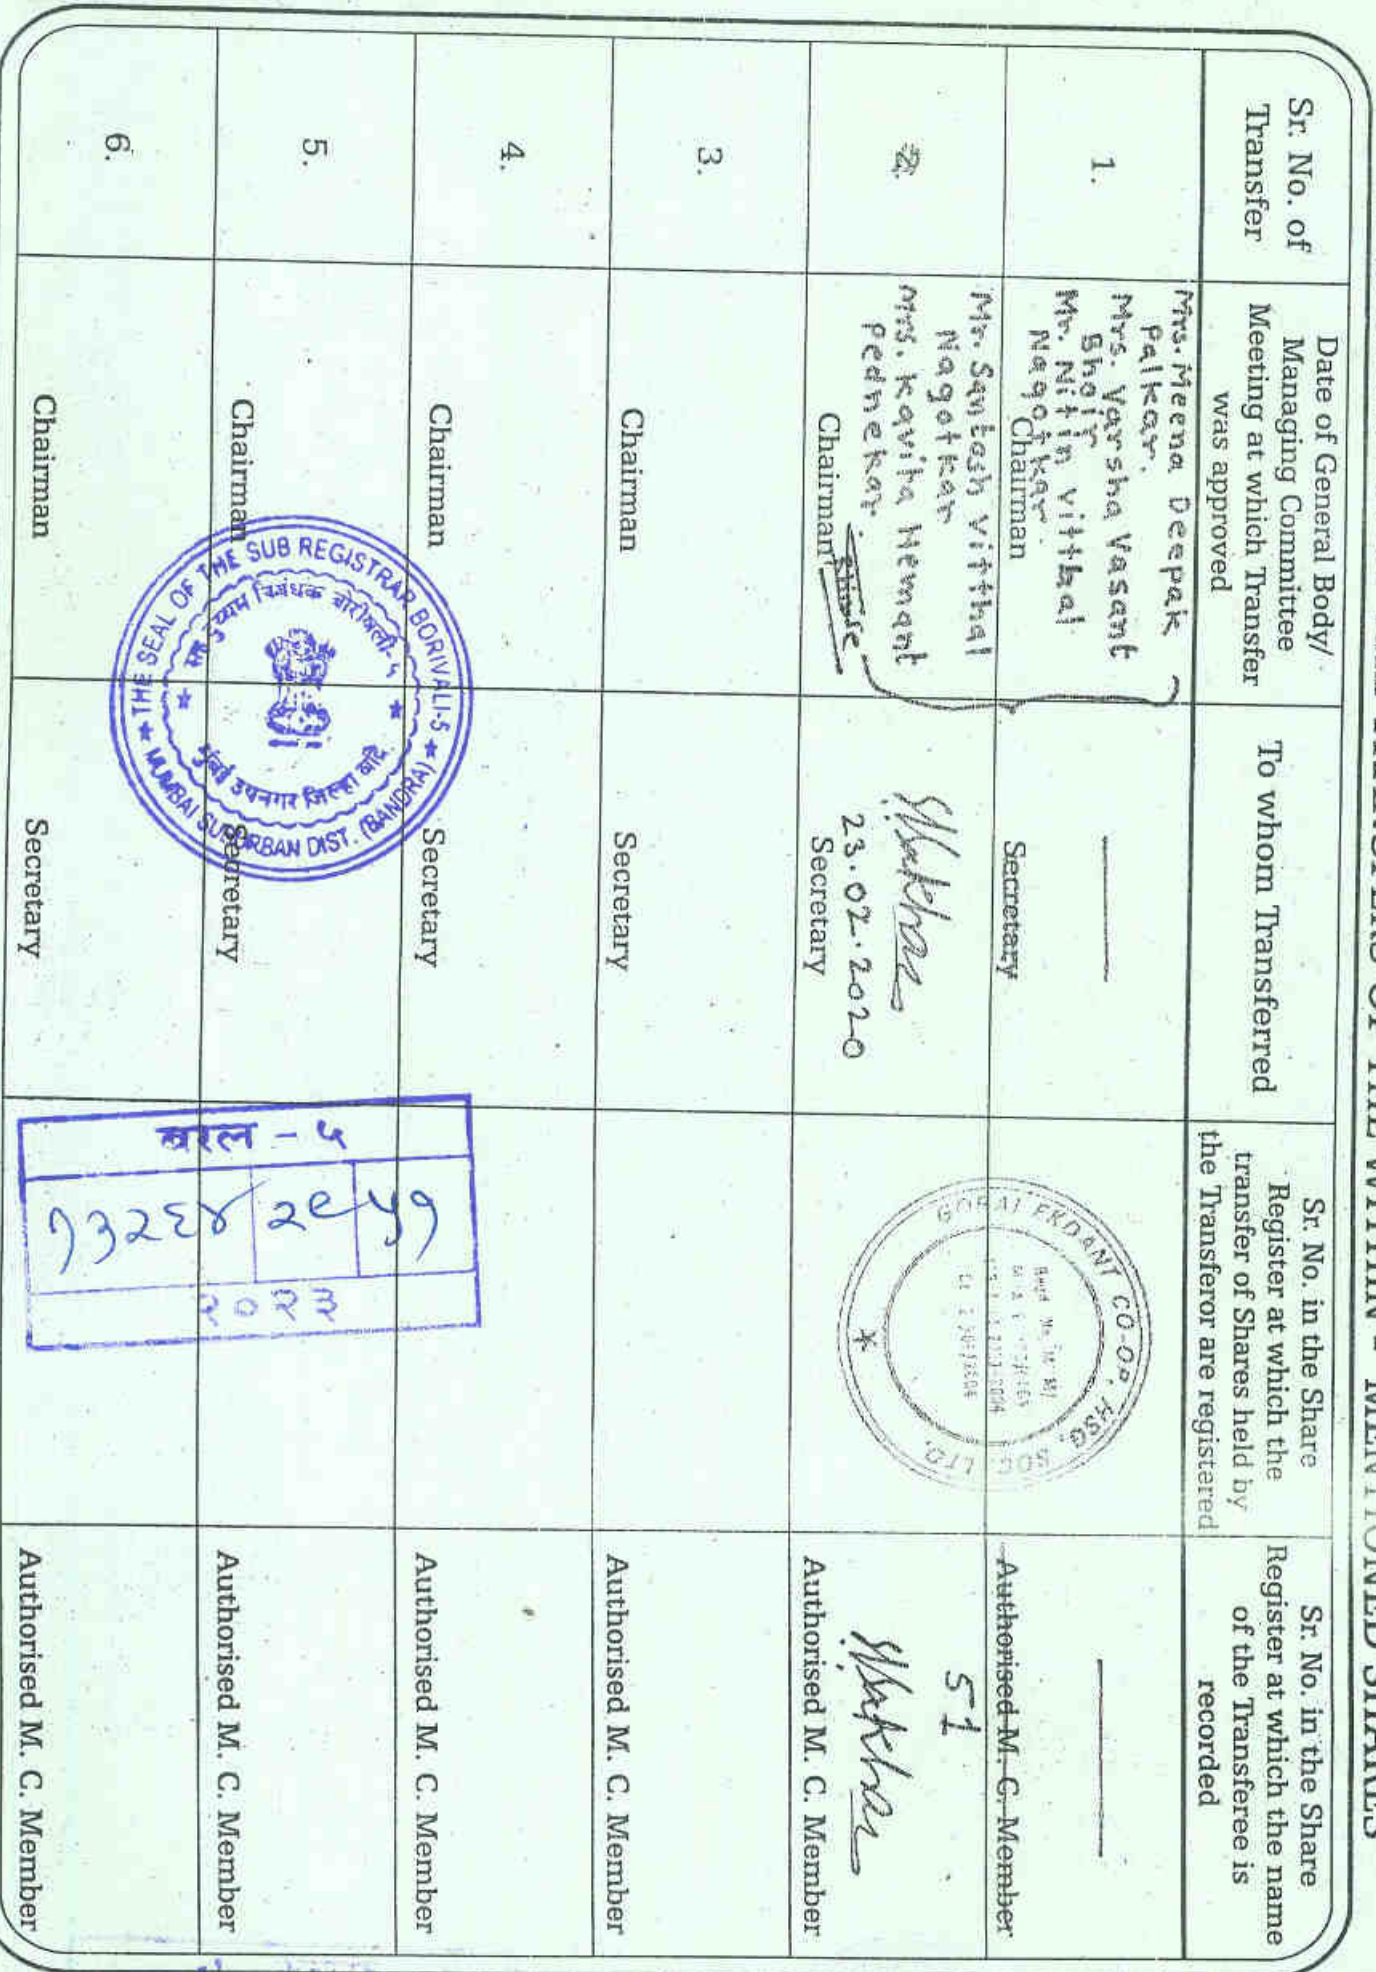 TRANSFERS OF THE WITHIN - MENTIONED SHARES
Sr. No. of
Transfer
Date of General Body/
Managing Committee
Meeting at which Transfer
was approved
To whom Transferred
Sr. No. in the Share
Register at which the
transfer of Shares held by
the Transferor are registered
Sr. No. in the Share
Register at which the name
of the Transferee is
recorded
1.
Mrs. Meena Deepak
Palkar.
Mrs. Varsha Vasant
Bhoir
Mr. Nitin vitthal
Nagotkar
Chairman
Secretary
Authorised M. C. Member
2.
Mr. Santosh vitthal
Nagotkar
Mrs. Kavita Hemant
Pednekar.
Chairman
23.02.2020
Secretary
51
Authorised M. C. Member
GORAI EKDANT CO-OP. HSG. SOC. LTD.
3.
Chairman
Secretary
Authorised M. C. Member
4.
Chairman
Secretary
Authorised M. C. Member
5.
Chairman
Secretary
Authorised M. C. Member
6.
Chairman
Secretary
Authorised M. C. Member
THE SEAL OF THE SUB REGISTRAR BORIVALI-5
MUMBAI SUBURBAN DIST. (BANDRA)
सह दुय्यम निबंधक बोरीवली-५
मुंबई उपनगर जिल्हा
बरल - ५
१३२६४ २९ ५१
२०२३